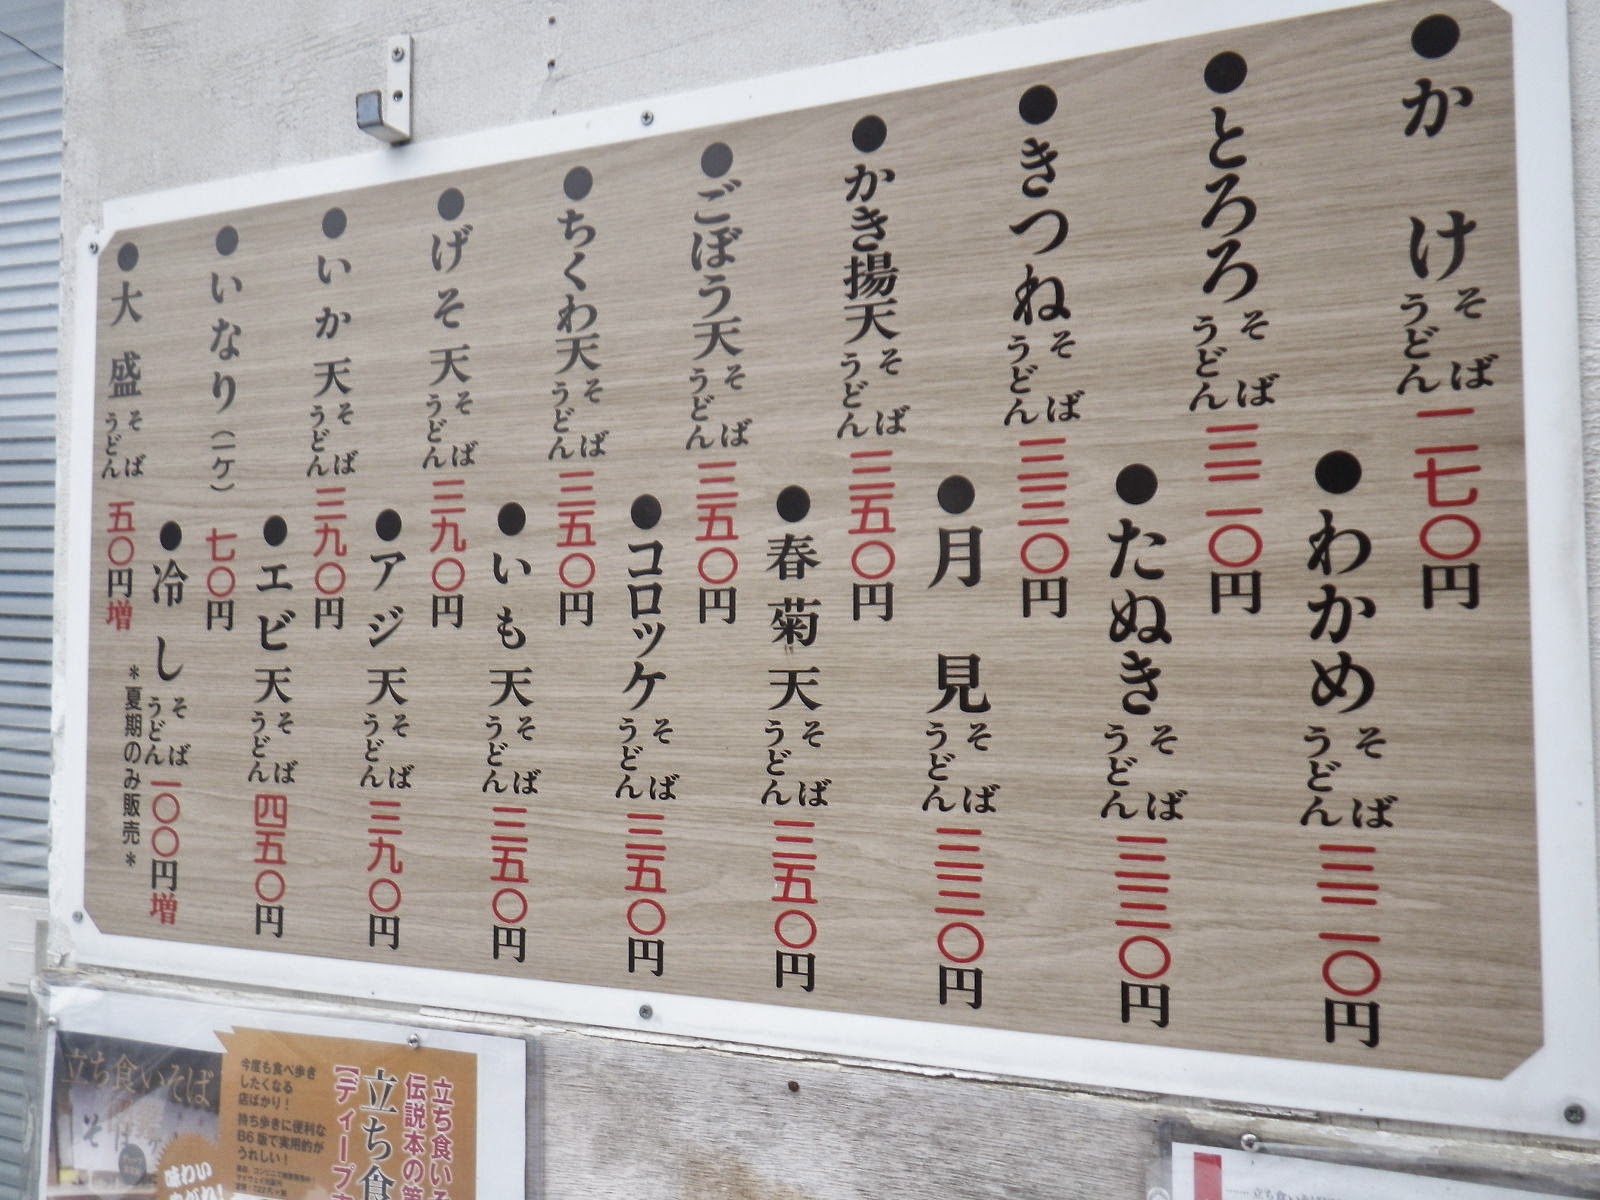 ●かけ そば うどん 二七〇円
●わかめ そば うどん 三一〇円
●とろろ そば うどん 三一〇円
●たぬき そば うどん 三三〇円
●きつね そば うどん 三三〇円
●月見 そば うどん 三三〇円
●かき揚天 そば うどん 三五〇円
●春菊天 そば うどん 三五〇円
●ごぼう天 そば うどん 三五〇円
●コロッケ そば うどん 三五〇円
●ちくわ天 そば うどん 三五〇円
●いも天 そば うどん 三五〇円
●げそ天 そば うどん 三九〇円
●アジ天 そば うどん 三九〇円
●いか天 そば うどん 三九〇円
●エビ天 そば うどん 四五〇円
●いなり(一ケ) 七〇円
●冷し そば うどん 一〇〇円増
*夏期のみ販売*
●大盛 そば うどん 五〇円増
立ち食いそ
伝説本の第
立ち食
【ディープ
今度も食べ歩き
したくなる
店ばかり！
持ち歩きに便利な
B6版で実用的が
うれしい！
立ち食いそば
味わい